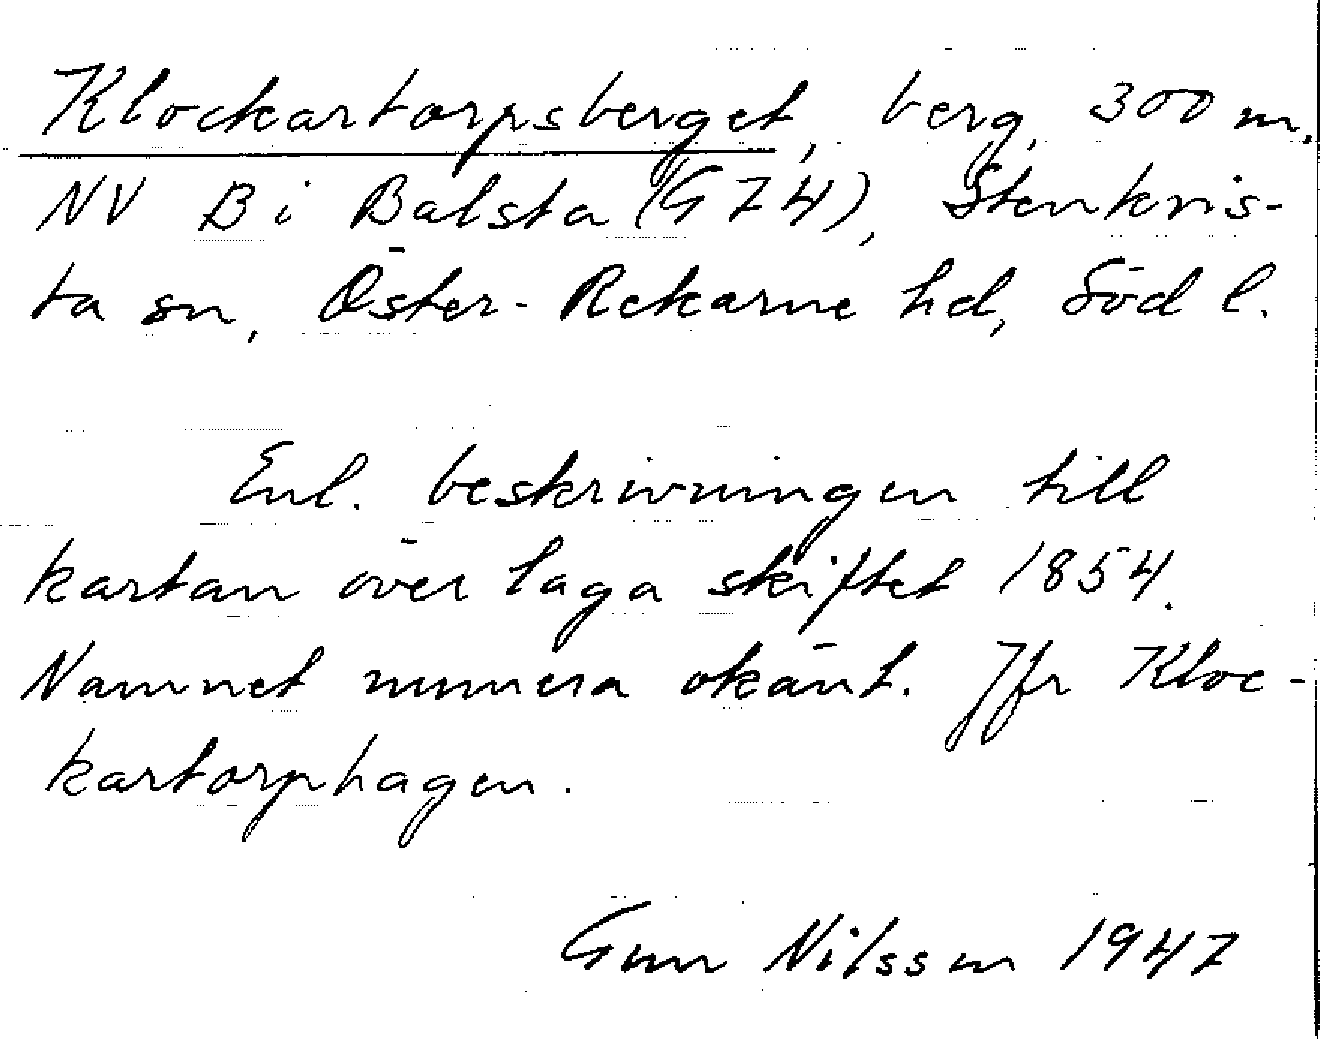 Klockartorpsberget, berg, 300 m.
NV B i Balsta (G 74), Stenkvis-
ta sn, Öster-Rekarne hd, Söd l.
Enl. beskrivningen till
kartan över laga skiftet 1854.
Namnet numera okänt. Jfr Kloc-
kartorphagen.
Gun Nilsson 1947